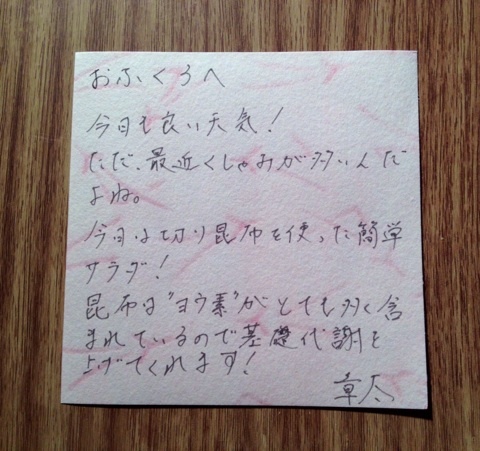 おふくろへ
今日も良い天気!
ただ、最近くしゃみが多いんだ
よね。
今日は切り昆布を使った簡単
サラダ!
昆布は"ヨウ素"がとても多く含
まれているので基礎代謝を
上げてくれます!
章太